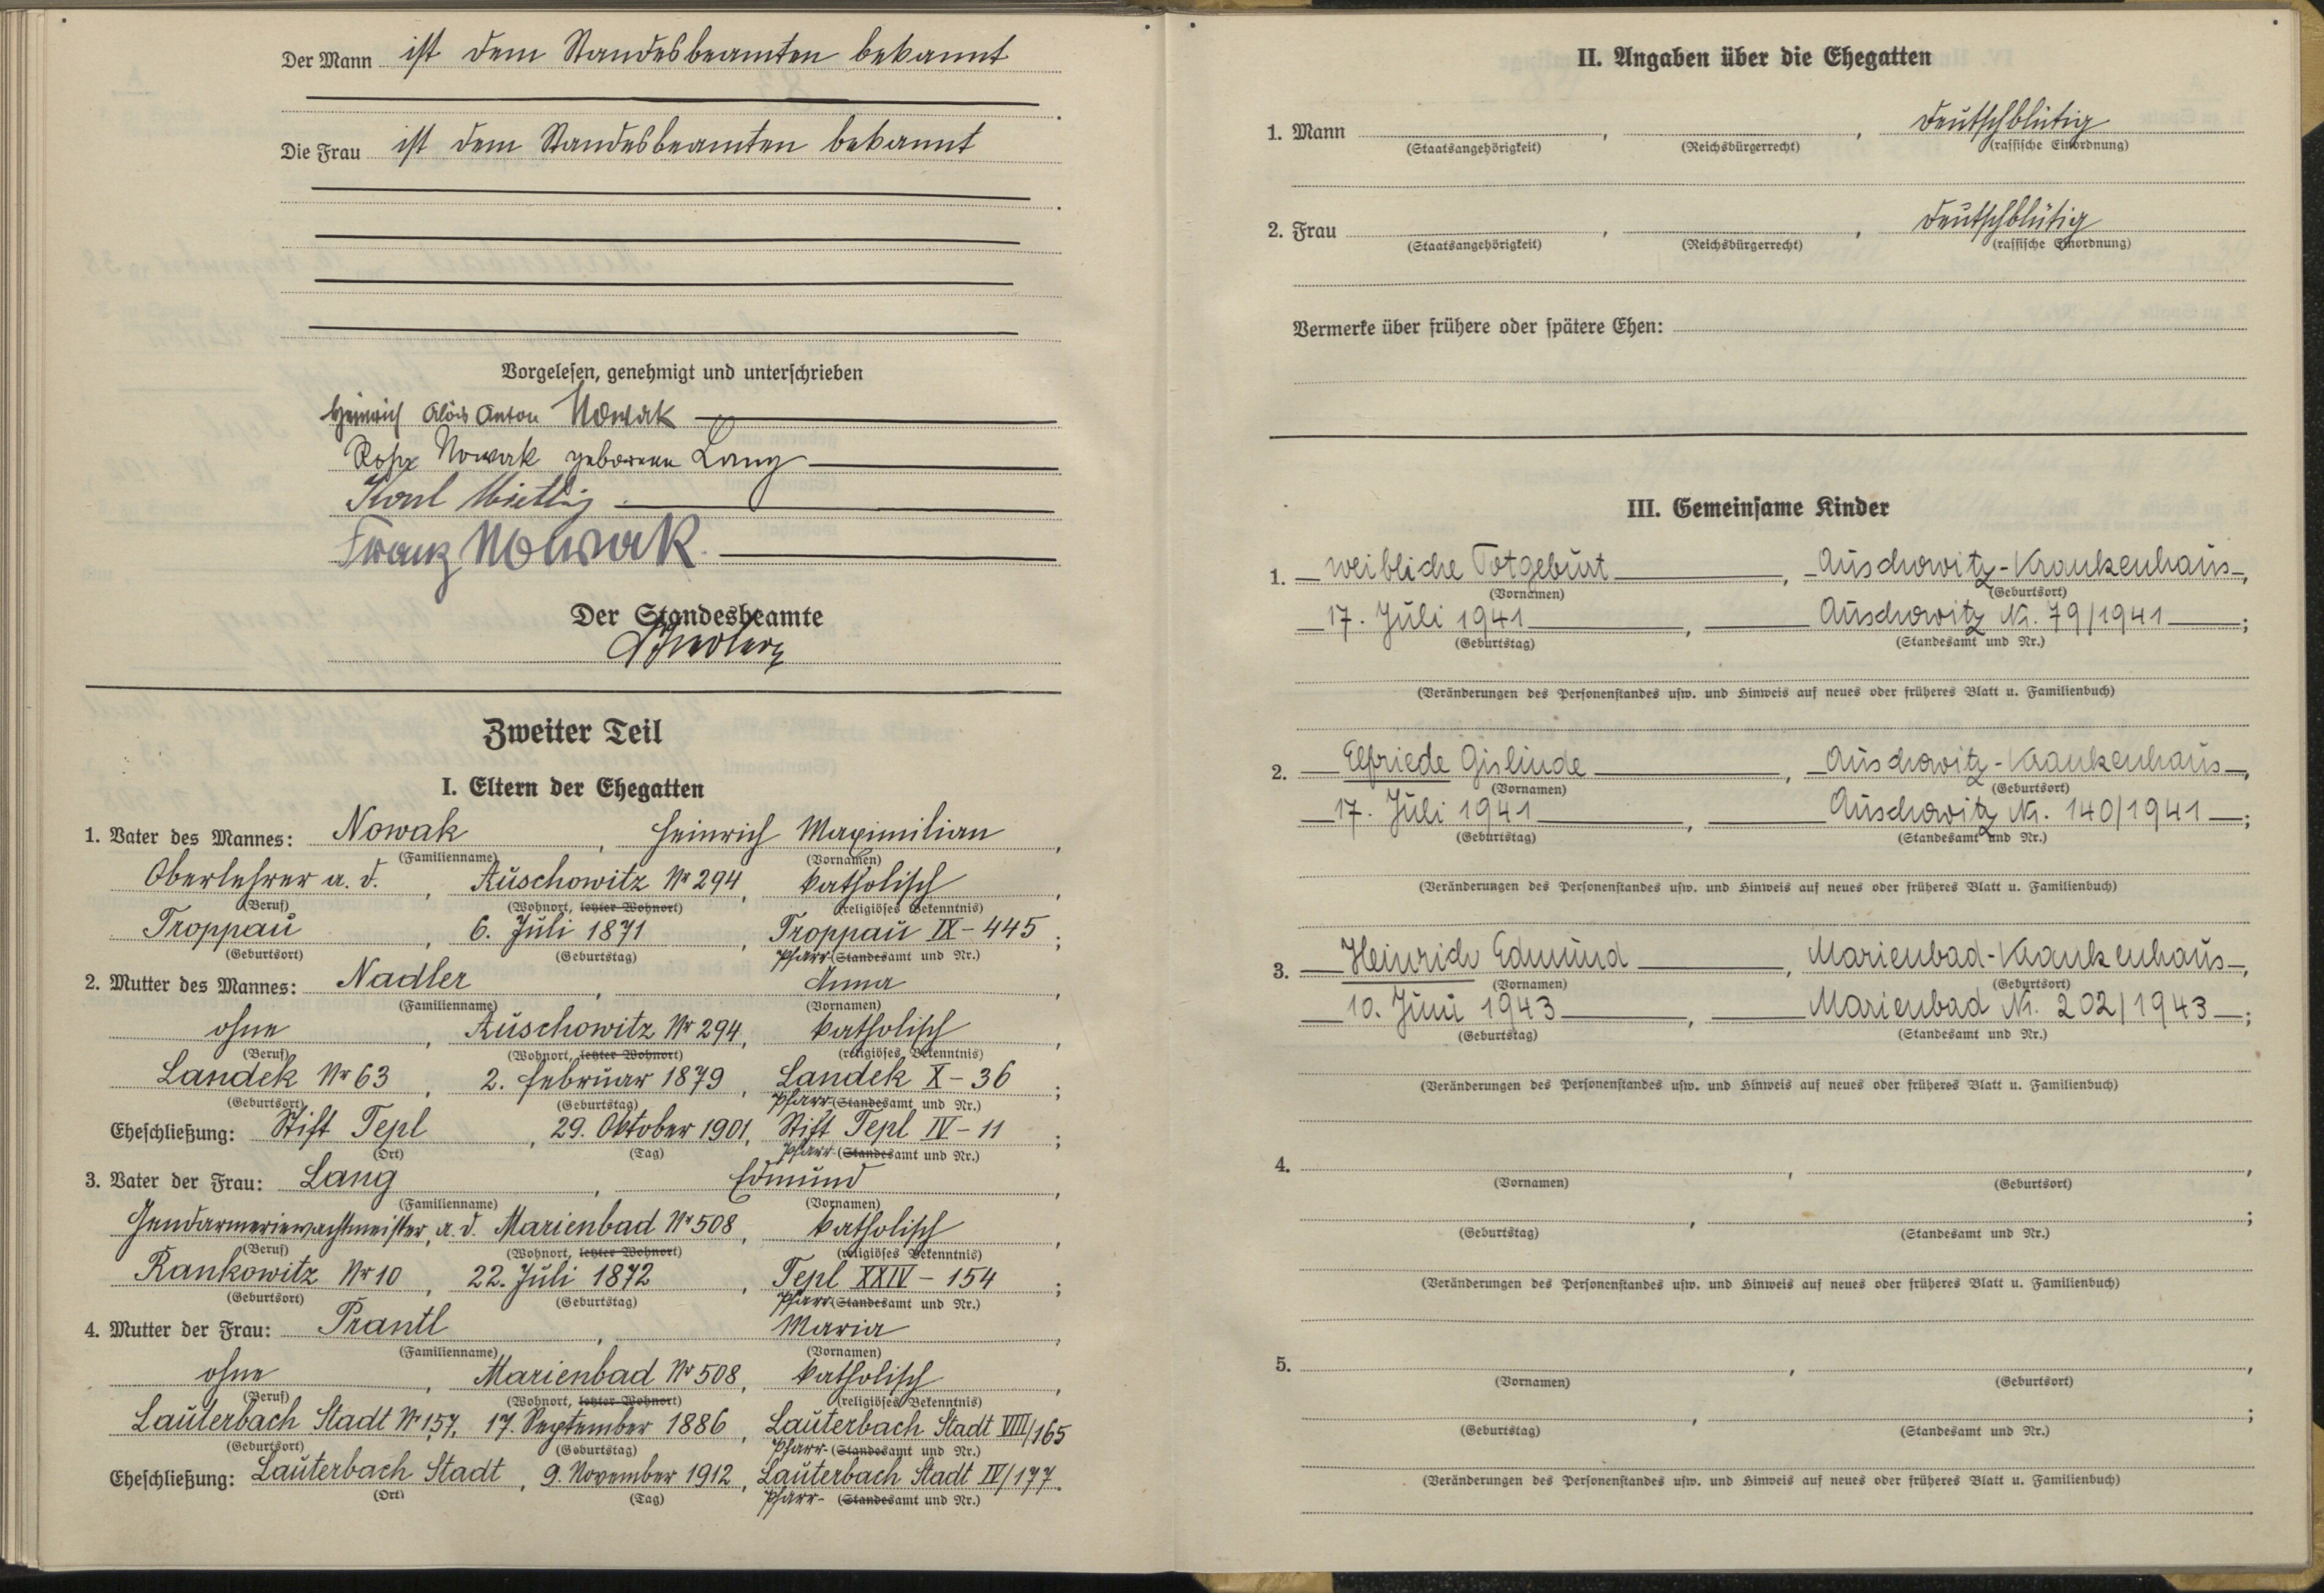 Der Mann ist dem Standesbeamten bekannt
Die Frau ist dem Standesbeamten bekannt
Vorgelesen, genehmigt und unterschrieben
Heinrich Alois Anton Nowak
Rosa Nowak geborene Lang
Karl
Franz Nowak.
Der Standesbeamte
Zweiter Teil
I. Eltern der Ehegatten
1. Vater des Mannes: Nowak, Heinrich Maximilian,
(Familienname) (Vornamen)
Oberlehrer a. d., Auschowitz Nr 294, katholisch,
(Beruf) (Wohnort, letzter Wohnort) (religiöses Bekenntnis)
Troppau, 6. Juli 1871, Troppau IX - 445;
(Geburtsort) (Geburtstag) Pfarr-(Standesamt und Nr.)
2. Mutter des Mannes: Nadler, Anna,
(Familienname) (Vornamen)
ohne, Auschowitz Nr 294, katholisch,
(Beruf) (Wohnort, letzter Wohnort) (religiöses Bekenntnis)
Landek Nr 63, 2. Februar 1879, Landek X - 36;
(Geburtsort) (Geburtstag) Pfarr-(Standesamt und Nr.)
Eheschließung: Stift Tepl, 29. Oktober 1901, Stift Tepl IV - 11;
(Ort) (Tag) Pfarr-(Standesamt und Nr.)
3. Vater der Frau: Lang, Edmund,
(Familienname) (Vornamen)
Gendarmeriewachtmeister, a. d. Marienbad Nr 508, katholisch,
(Beruf) (Wohnort, letzter Wohnort) (religiöses Bekenntnis)
Rankowitz Nr 10, 22. Juli 1872, Tepl XXIV - 154;
(Geburtsort) (Geburtstag) Pfarr-(Standesamt und Nr.)
4. Mutter der Frau: Prantl, Maria,
(Familienname) (Vornamen)
ohne, Marienbad Nr 508, katholisch,
(Beruf) (Wohnort, letzter Wohnort) (religiöses Bekenntnis)
Lauterbach Stadt Nr 157, 17. September 1886, Lauterbach Stadt VIII/165
(Geburtsort) (Geburtstag) Pfarr-(Standesamt und Nr.)
Eheschließung: Lauterbach Stadt, 9. November 1912, Lauterbach Stadt IV/177.
(Ort) (Tag) Pfarr-(Standesamt und Nr.)
II. Angaben über die Ehegatten
1. Mann , , deutschblütig
(Staatsangehörigkeit) (Reichsbürgerrecht) (rassische Einordnung)
2. Frau , , deutschblütig
(Staatsangehörigkeit) (Reichsbürgerrecht) (rassische Einordnung)
Vermerke über frühere oder spätere Ehen:
III. Gemeinsame Kinder
1. weibliche Totgeburt, Auschowitz-Krankenhaus,
(Vornamen) (Geburtsort)
17. Juli 1941, Auschowitz Nr. 79/1941;
(Geburtstag) (Standesamt und Nr.)
(Veränderungen des Personenstandes usw. und Hinweis auf neues oder früheres Blatt u. Familienbuch)
2. Elfriede Gislinde, Auschowitz-Krankenhaus,
(Vornamen) (Geburtsort)
17. Juli 1941, Auschowitz Nr. 140/1941;
(Geburtstag) (Standesamt und Nr.)
(Veränderungen des Personenstandes usw. und Hinweis auf neues oder früheres Blatt u. Familienbuch)
3. Heinrich Edmund, Marienbad-Krankenhaus,
(Vornamen) (Geburtsort)
10. Juni 1943, Marienbad Nr. 202/1943;
(Geburtstag) (Standesamt und Nr.)
(Veränderungen des Personenstandes usw. und Hinweis auf neues oder früheres Blatt u. Familienbuch)
4. , ,
(Vornamen) (Geburtsort)
, ;
(Geburtstag) (Standesamt und Nr.)
(Veränderungen des Personenstandes usw. und Hinweis auf neues oder früheres Blatt u. Familienbuch)
5. , ,
(Vornamen) (Geburtsort)
, ;
(Geburtstag) (Standesamt und Nr.)
(Veränderungen des Personenstandes usw. und Hinweis auf neues oder früheres Blatt u. Familienbuch)